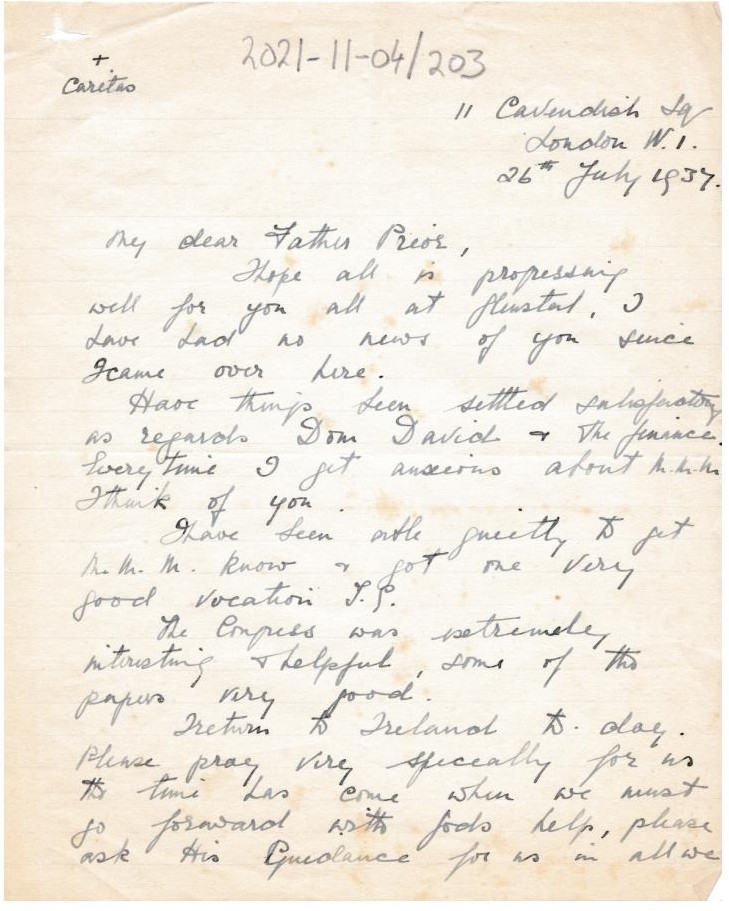 2021-11-04/203
+
Caritas
11 Cavendish Sq
London W.1.
26th July 1937.
My dear Father Prior,
I hope all is progressing
well for you all at Glenstal, I
have had no news of you since
I came over here.
Have things been settled satisfactory
as regards Dom David & the finance.
Every time I get anxious about M.M.M
I think of you.
I have been able quietly to get
M.M.M. known & got one very
good vocation T.G.
The Congress was extremely
interesting & helpful, some of the
papers very good.
I return to Ireland to-day.
Please pray very specially for us
the time has come when we must
go forward with Gods help, please
ask His Guidance for us in all we